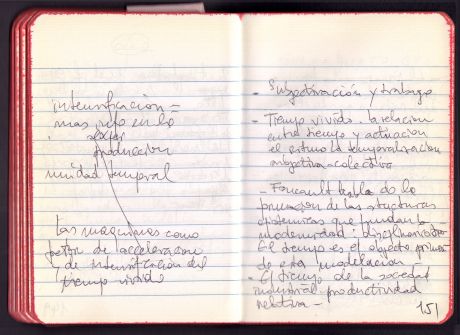 intensificacion =
mas en lo
produccion
unidad temporal
las maquinas como
de acceleracion
y de intensificacion del
tiempo vivido
- Subjetivación y trabajo
- Tiempo vivido. la relacion
entre tiempo y actuacion
el ritmo la temporalizacion
subjetiva-colectiva
- Foucault habla de la
formacion de las structuras
que fundan la
modernidad: disciplinarias
El tiempo es el objeto
de esta modelacion -
- El tiempo de la sociedad
industrial productividad
-
151